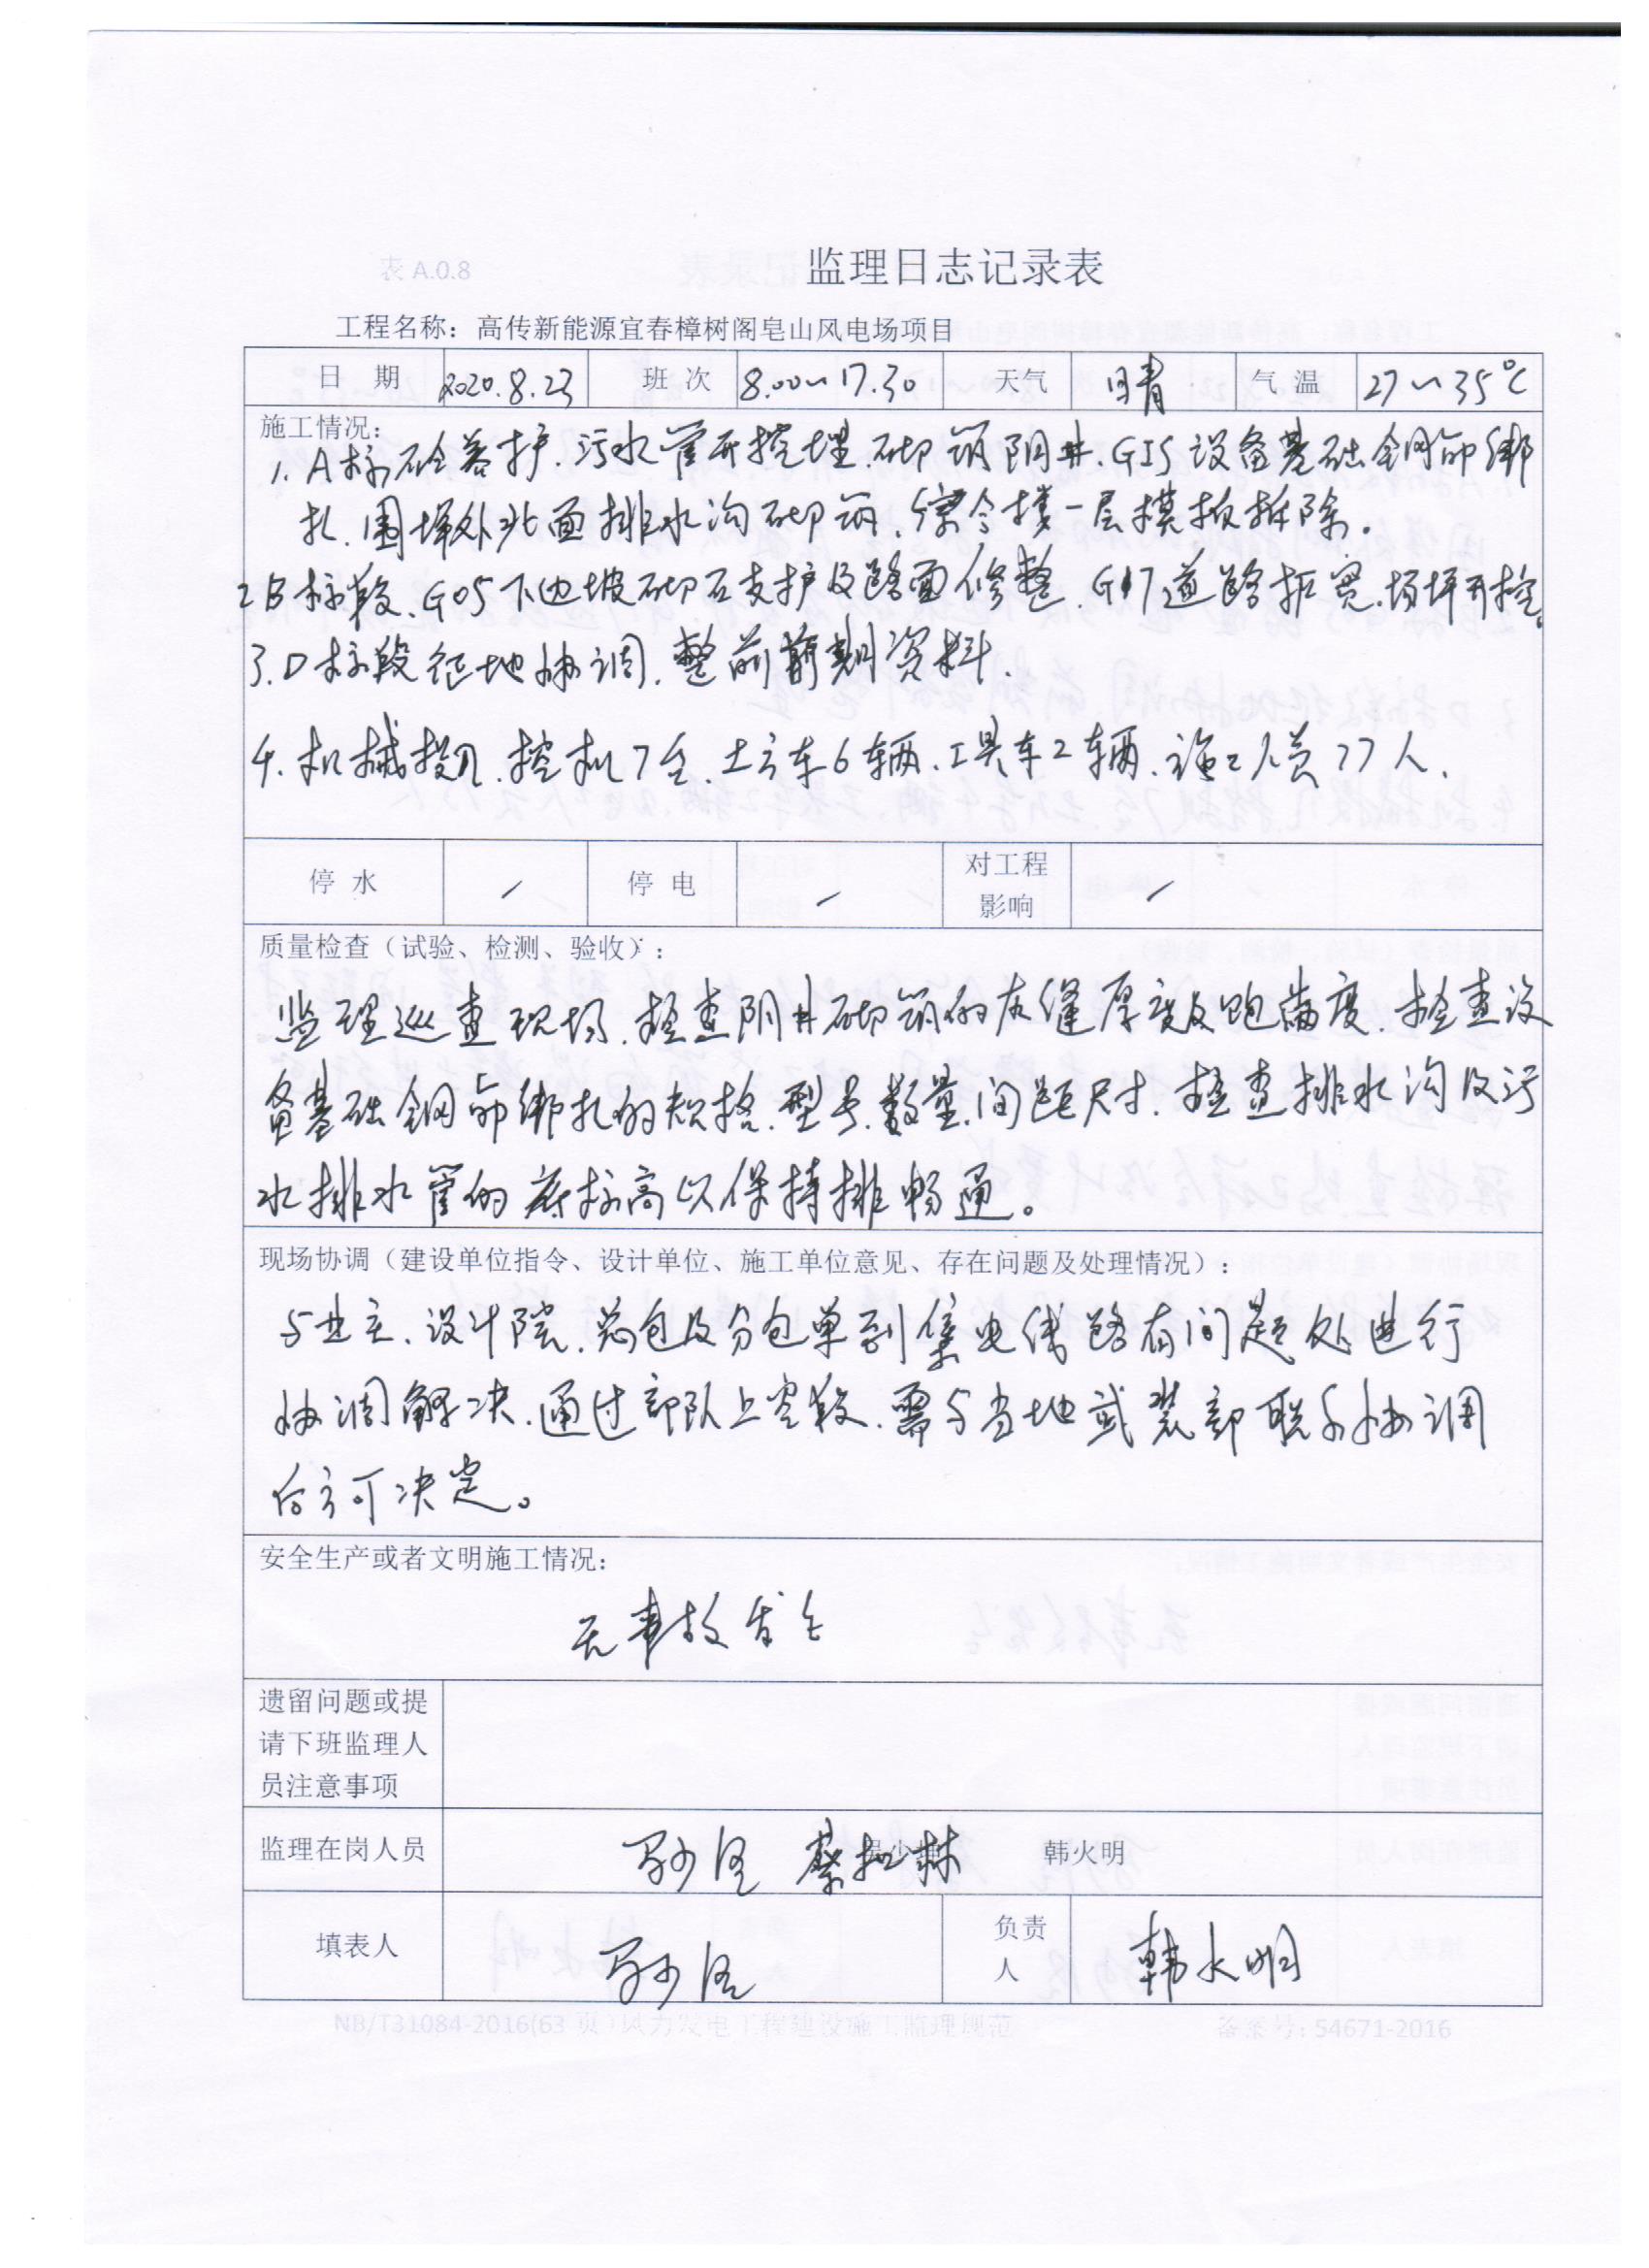 表 A.0.8
监理日志记录表
工程名称：高传新能源宜春樟树阁皂山风电场项目
日 期 2020.8.23 班 次 8.00～17.30 天气 晴 气 温 27～35℃
施工情况：
1. A标砼养护、污水管开挖埋、砌筑阴井、GIS设备基础钢筋绑
扎、围墙外北面排水沟砌筑、综合楼一层模板拆除。
2 B标段、G05下边坡砌石支护及路面修整、G17道路拓宽、场坪开挖。
3. D标段征地协调、整前期资料.
4. 机械投入、挖机7台、土方车6辆、工具车2辆、施工人员77人.
停 水 / 停 电 / 对工程
影响 /
质量检查（试验、检测、验收）：
监理巡查现场、检查阴井砌筑的灰缝厚度及饱满度、检查设
备基础钢筋绑扎的规格、型号、数量、间距尺寸、检查排水沟及污
水排水管的底标高以保持排畅通。
现场协调（建设单位指令、设计单位、施工单位意见、存在问题及处理情况）：
与业主、设计院、总包及分包单到集电线路有问题处进行
协调解决、通过部队上空段、需与当地武装部联系协调
后方可决定。
安全生产或者文明施工情况：
无事故发生
遗留问题或提
请下班监理人
员注意事项
监理在岗人员 韩火明
填表人 负责
人 韩火明
NB/T31084-2016(63 页)风力发电工程建设施工监理规范 备案号：54671-2016